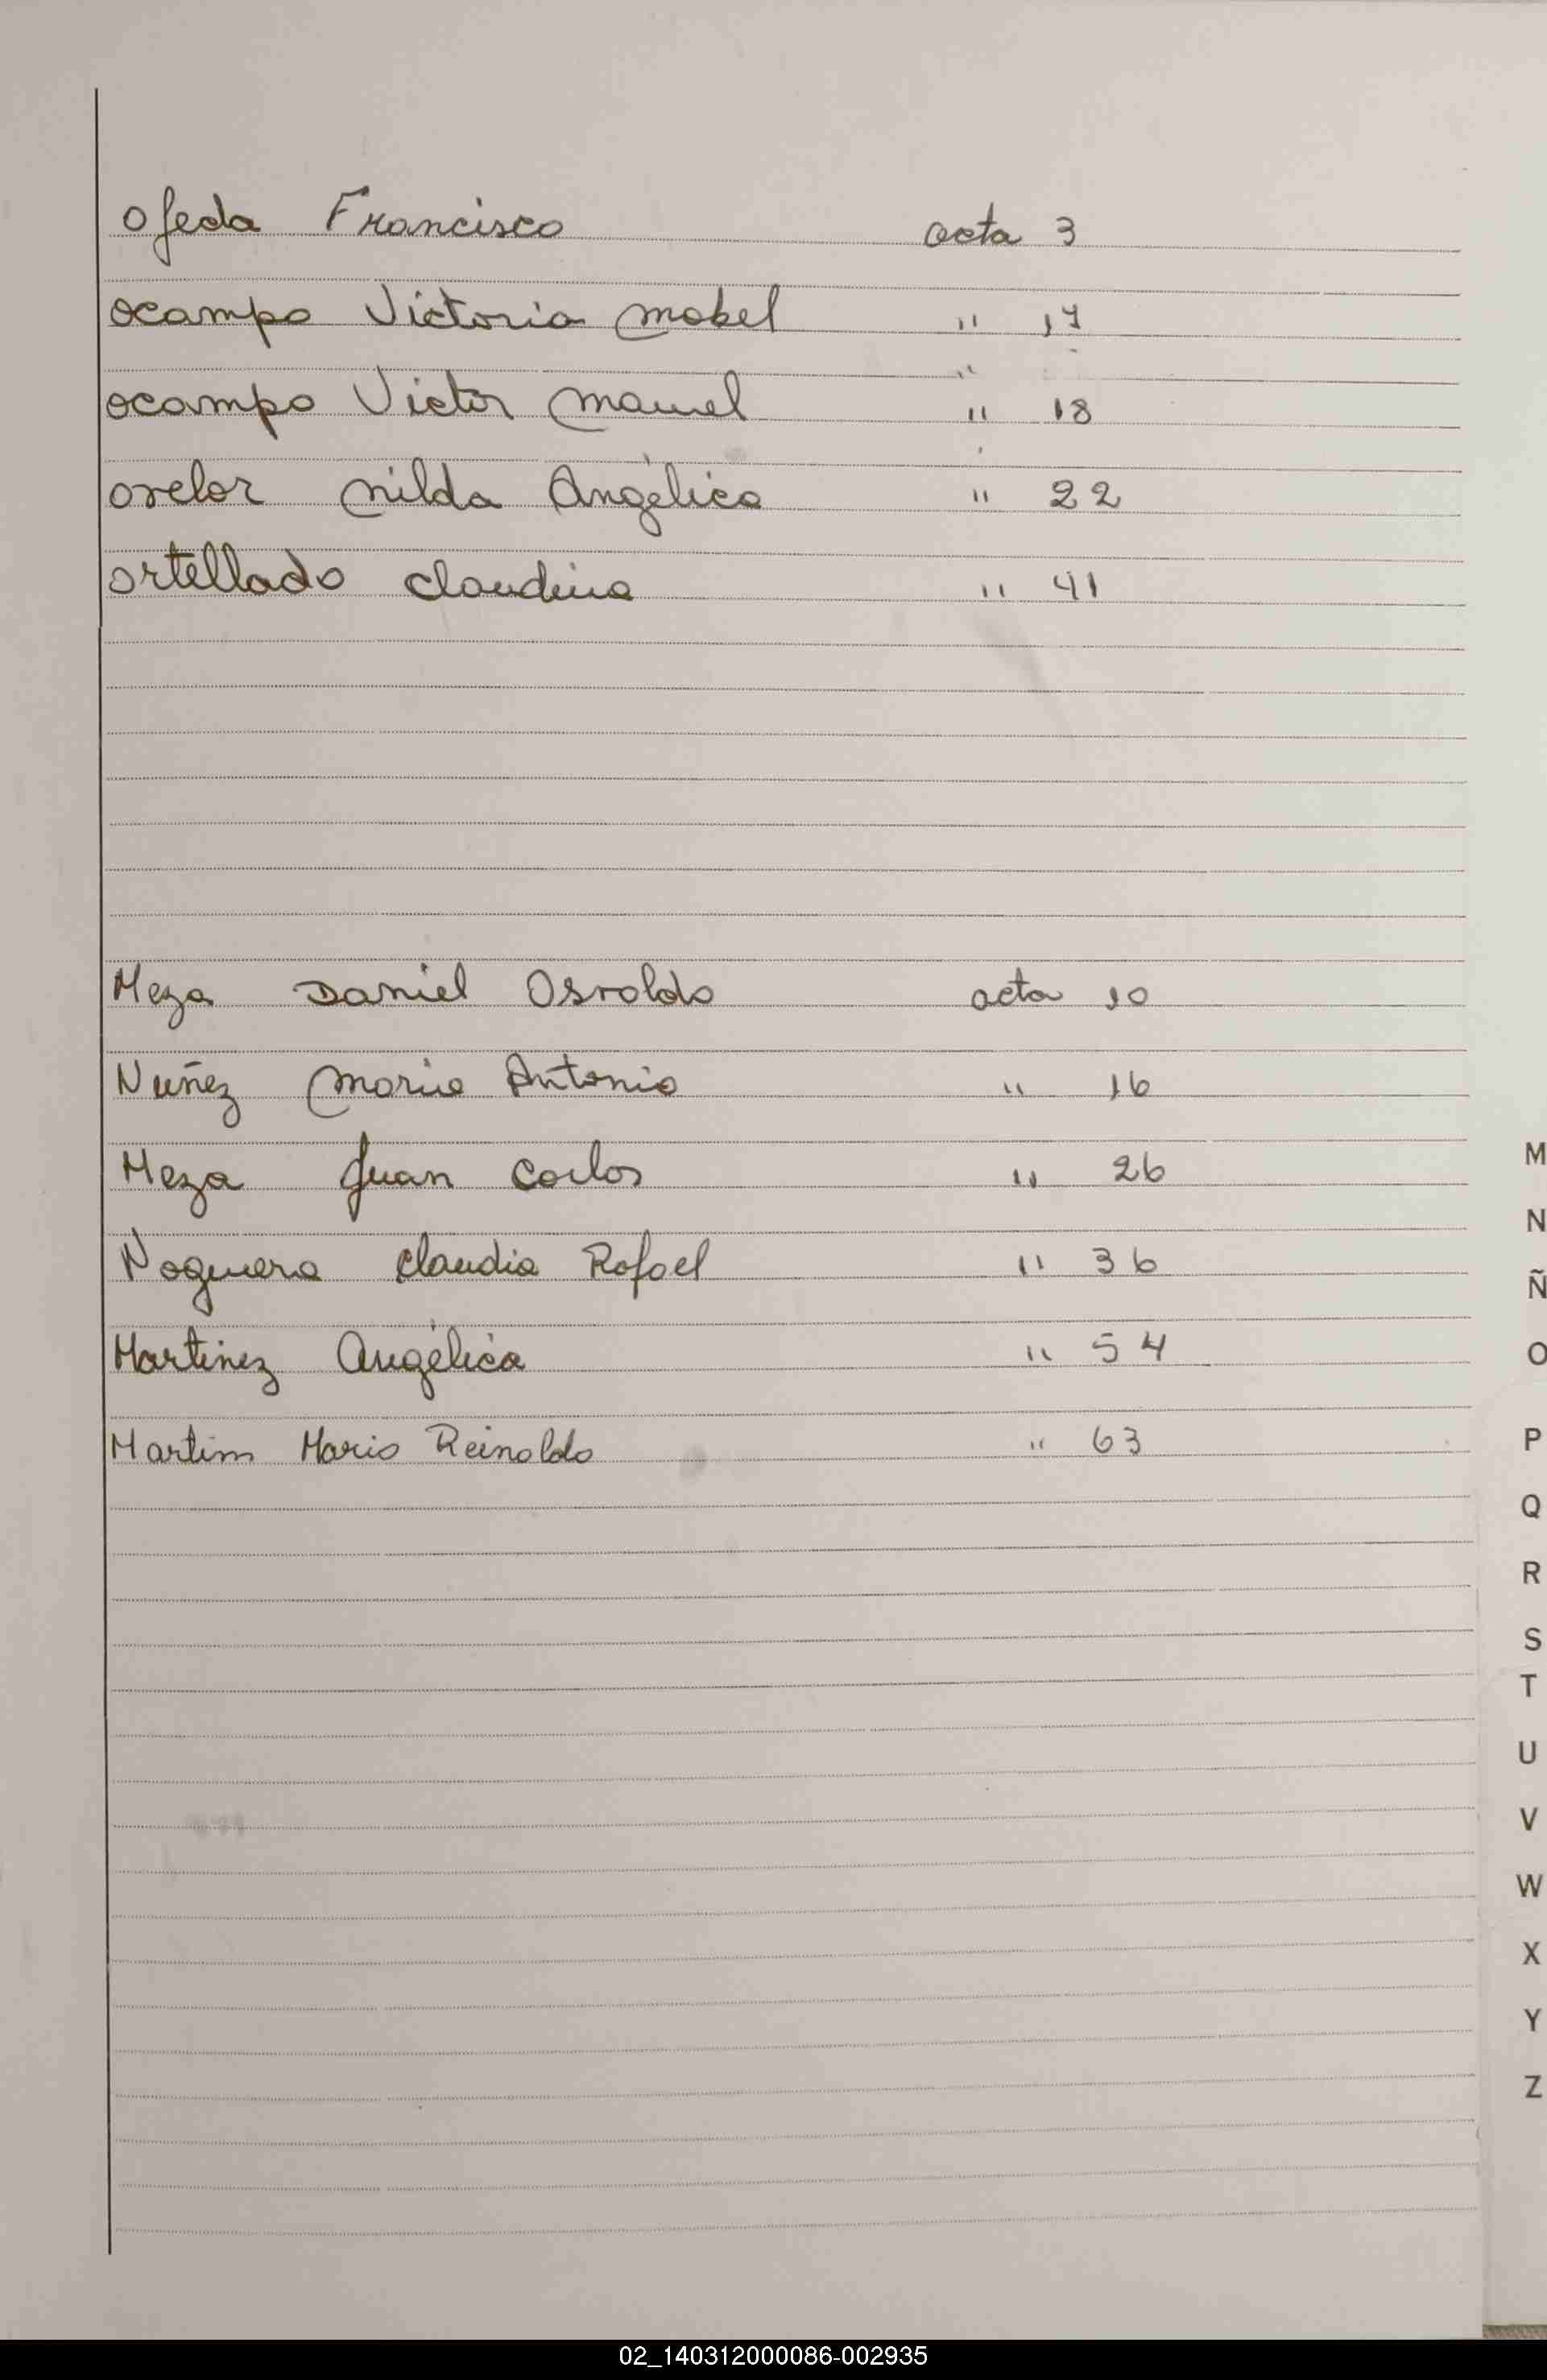 Ojeda Francisco acta 3
Ocampo Victoria Mabel " 17
"
Ocampo Victor Manuel " 18
Ovelar Nilda Angélica " 22
Ortellado Claudina " 41
Meza Daniel Osvaldo acta 10
Nuñez Maria Antonia " 16
Meza Juan Carlos " 26
Noguera Claudia Rafael " 36
Martinez Angélica " 54
Martins Mario Reinaldo " 63
M
N
Ñ
O
P
Q
R
S
T
U
V
W
X
Y
Z
02_140312000086-002935